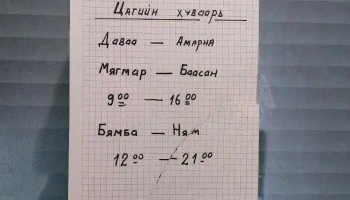 Цагийн хуваарь
Даваа — Амарна
Мягмар — Баасан
9⁰⁰ — 16⁰⁰
Бямба — Ням
12⁰⁰ — 21⁰⁰